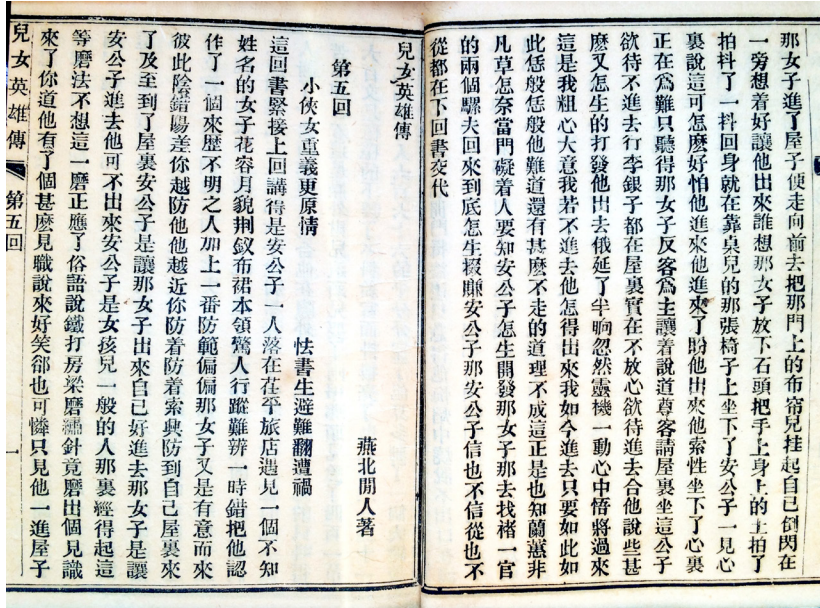 那女子進了屋子便走向前去把那門上的布帘兒挂起自己倒閃在
一旁想着好讓他出來誰想那女子放下石頭把手上身上的土拍了
拍抖了一抖回身就在靠桌兒的那張椅子上坐下了安公子一見心
裏說這可怎麽好怕他進來他進來了盼他出來他索性坐下了心裏
正在爲難只聽得那女子反客爲主讓着說道尊客請屋裏坐這公子
欲待不進去行李銀子都在屋裏實在不放心欲待進去合他說些甚
麽又怎生的打發他出去俄延了半晌忽然靈機一動心中悟將過來
這是我粗心大意我若不進去他怎得出來我如今進去只要如此如
此恁般恁般他難道還有甚麽不走的道理不成這正是也知蘭蕙非
凡草怎奈當門礙着人要知安公子怎生開發那女子那去找褚一官
的兩個騾夫回來到底怎生掇賺安公子那安公子信也不信從也不
從都在下回書交代
兒女英雄傳
燕北閒人著
第五回
小俠女重義更原情 怯書生避難翻遭禍
這回書緊接上回講得是安公子一人落在茌平旅店遇見一個不知
姓名的女子花容月貌荆釵布裙本領驚人行蹤難辨一時錯把他認
作了一個來歷不明之人加上一番防範偏偏那女子又是有意而來
彼此陰錯陽差你越防他他越近你防着防着索興防到自己屋裏來
了及至到了屋裏安公子是讓那女子出來自己好進去那女子是讓
安公子進去他可不出來安公子是女孩兒一般的人那裏經得起這
等磨法不想這一磨正應了俗語說鐵打房梁磨繡針竟磨出個見識
來了你道他有了個甚麽見職說來好笑卻也可憐只見他一進屋子
兒女英雄傳 第五回 一